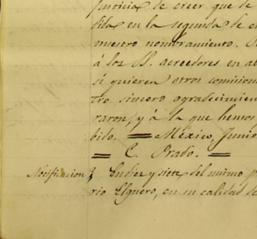 justicia de creer que se
dila en la segunda de e
nuestro nombramiento. S
á los SS. acreedores en ac
si quieren otros comision
tro sincero agradecimien
raron, y á la que hemos
bido. = México, Junio
= C. Prado. =
Notificacion} En diez y siete del mismo p
rio Elguero, en su calidad de